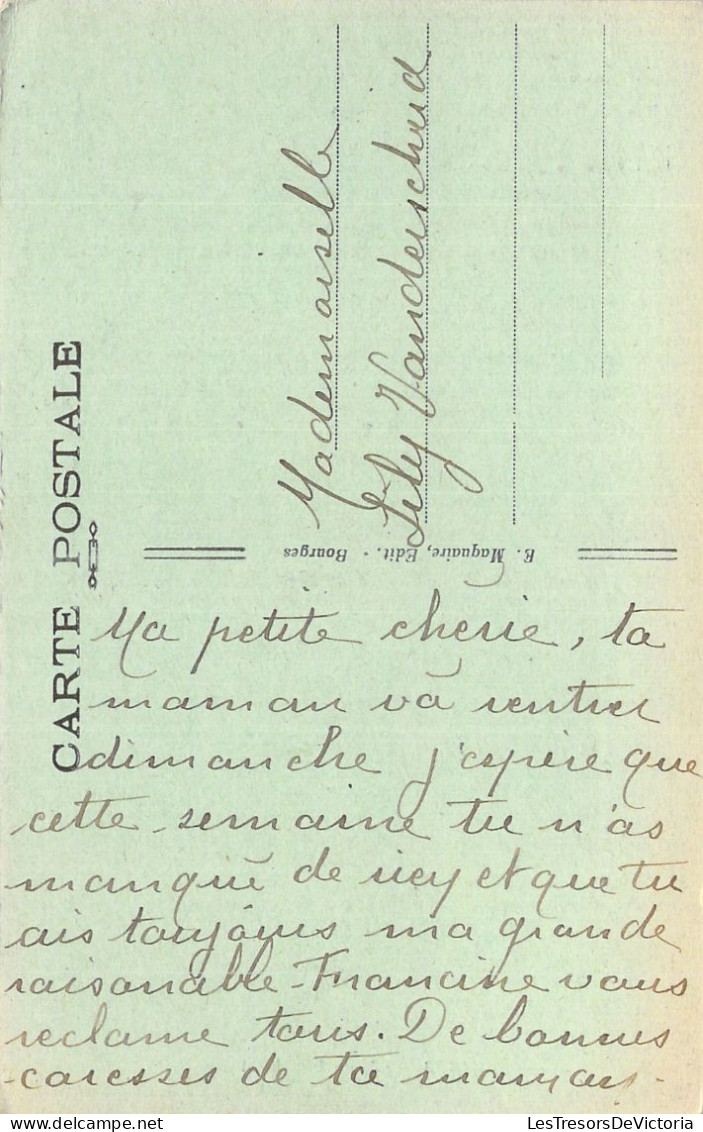 CARTE POSTALE
Mademoiselle
Lily Vanderscheid
E. Maquaire, Edit. - Bourges
Ma petite chérie, ta
maman va rentrer
dimanche j'espère que
cette semaine tu n'as
manqué de riey et que tu
ais toujours ma grande
raisonable - Francine vous
reclame tous. De bonnes
caresses de ta maman.
LesTresorsDeVictoria